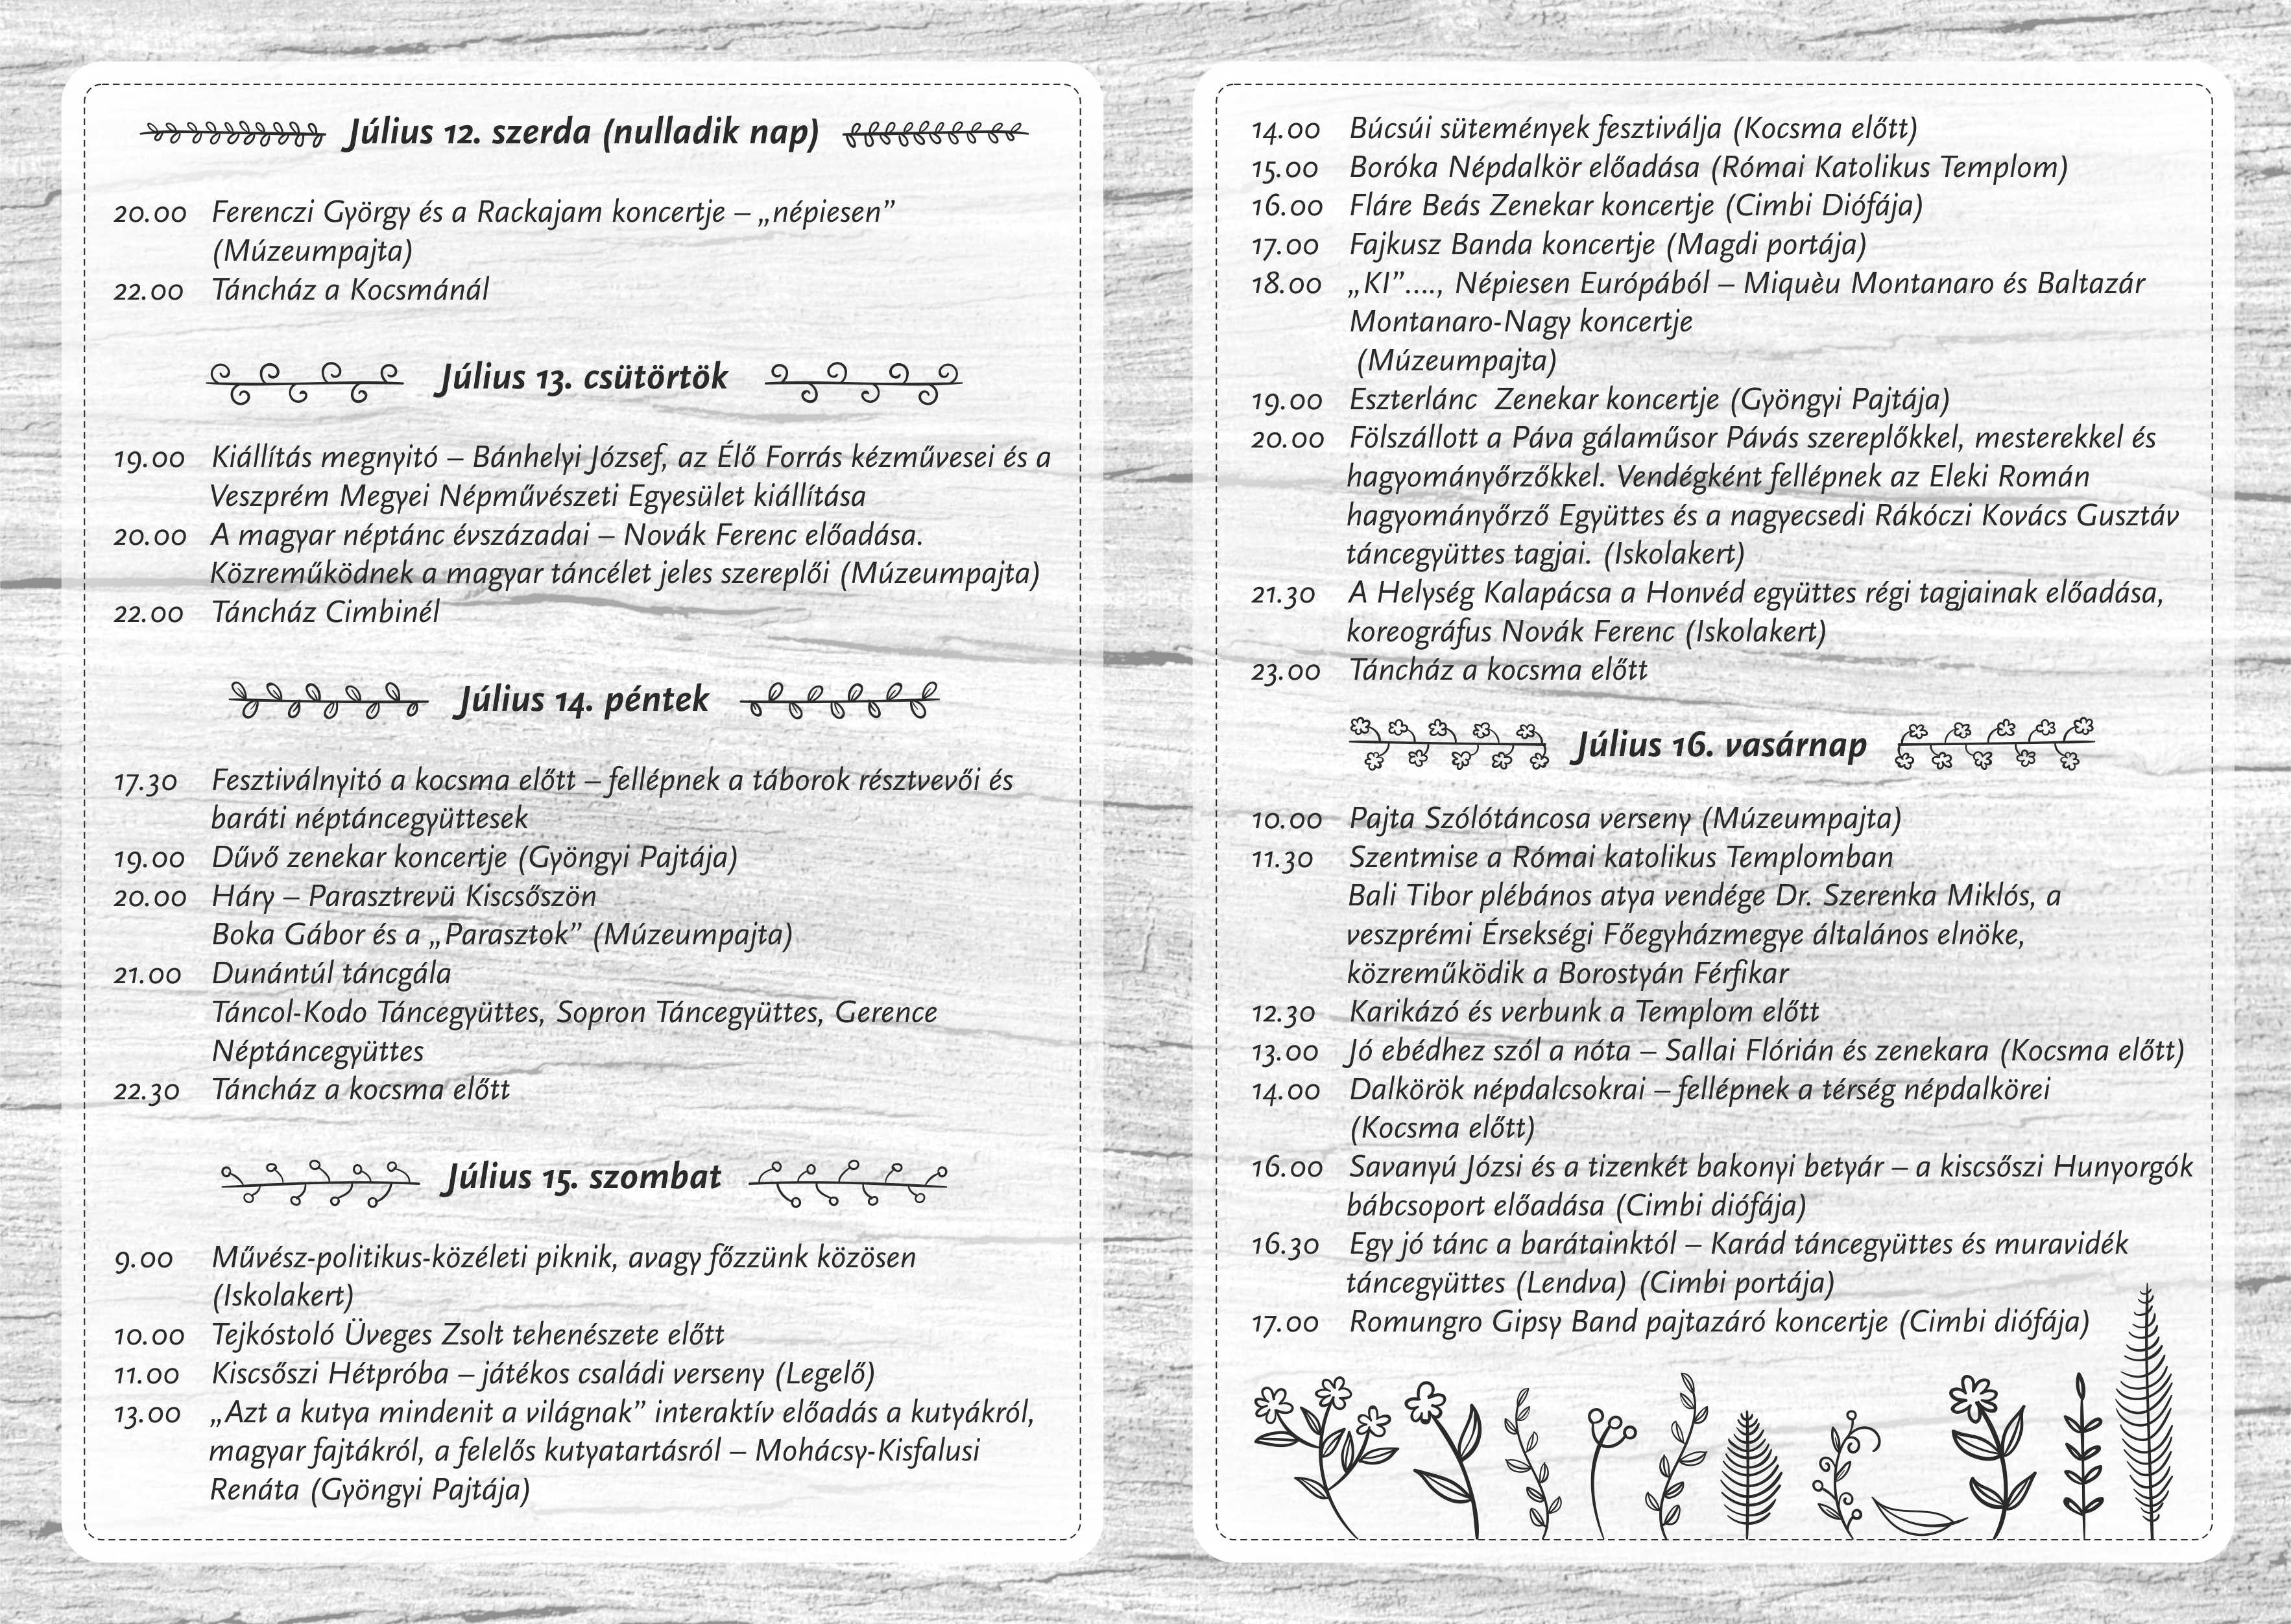 Július 12. szerda (nulladik nap)
20.00 Ferenczi György és a Rackajam koncertje – „népiesen”
(Múzeumpajta)
22.00 Táncház a Kocsmánál
Július 13. csütörtök
19.00 Kiállítás megnyitó – Bánhelyi József, az Élő Forrás kézművesei és a
Veszprém Megyei Népművészeti Egyesület kiállítása
20.00 A magyar néptánc évszázadai – Novák Ferenc előadása.
Közreműködnek a magyar táncélet jeles szereplői (Múzeumpajta)
22.00 Táncház Cimbinél
Július 14. péntek
17.30 Fesztiválnyitó a kocsma előtt – fellépnek a táborok résztvevői és
baráti néptáncegyüttesek
19.00 Dűvő zenekar koncertje (Gyöngyi Pajtája)
20.00 Háry – Parasztrevü Kiscsőszön
Boka Gábor és a „Parasztok” (Múzeumpajta)
21.00 Dunántúl táncgála
Táncol-Kodo Táncegyüttes, Sopron Táncegyüttes, Gerence
Néptáncegyüttes
22.30 Táncház a kocsma előtt
Július 15. szombat
9.00 Művész-politikus-közéleti piknik, avagy főzzünk közösen
(Iskolakert)
10.00 Tejkóstoló Üveges Zsolt tehenészete előtt
11.00 Kiscsőszi Hétpróba – játékos családi verseny (Legelő)
13.00 „Azt a kutya mindenit a világnak” interaktív előadás a kutyákról,
magyar fajtákról, a felelős kutyatartásról – Mohácsy-Kisfalusi
Renáta (Gyöngyi Pajtája)
14.00 Búcsúi sütemények fesztiválja (Kocsma előtt)
15.00 Boróka Népdalkör előadása (Római Katolikus Templom)
16.00 Fláre Beás Zenekar koncertje (Cimbi Diófája)
17.00 Fajkusz Banda koncertje (Magdi portája)
18.00 „KI”...., Népiesen Európából – Miquèu Montanaro és Baltazár
Montanaro-Nagy koncertje
(Múzeumpajta)
19.00 Eszterlánc Zenekar koncertje (Gyöngyi Pajtája)
20.00 Fölszállott a Páva gálaműsor Pávás szereplőkkel, mesterekkel és
hagyományőrzőkkel. Vendégként fellépnek az Eleki Román
hagyományőrző Együttes és a nagyecsedi Rákóczi Kovács Gusztáv
táncegyüttes tagjai. (Iskolakert)
21.30 A Helység Kalapácsa a Honvéd együttes régi tagjainak előadása,
koreográfus Novák Ferenc (Iskolakert)
23.00 Táncház a kocsma előtt
Július 16. vasárnap
10.00 Pajta Szólótáncosa verseny (Múzeumpajta)
11.30 Szentmise a Római katolikus Templomban
Bali Tibor plébános atya vendége Dr. Szerenka Miklós, a
veszprémi Érsekségi Főegyházmegye általános elnöke,
közreműködik a Borostyán Férfikar
12.30 Karikázó és verbunk a Templom előtt
13.00 Jó ebédhez szól a nóta – Sallai Flórián és zenekara (Kocsma előtt)
14.00 Dalkörök népdalcsokrai – fellépnek a térség népdalkörei
(Kocsma előtt)
16.00 Savanyú Józsi és a tizenkét bakonyi betyár – a kiscsőszi Hunyorgók
bábcsoport előadása (Cimbi diófája)
16.30 Egy jó tánc a barátainktól – Karád táncegyüttes és muravidék
táncegyüttes (Lendva) (Cimbi portája)
17.00 Romungro Gipsy Band pajtazáró koncertje (Cimbi diófája)